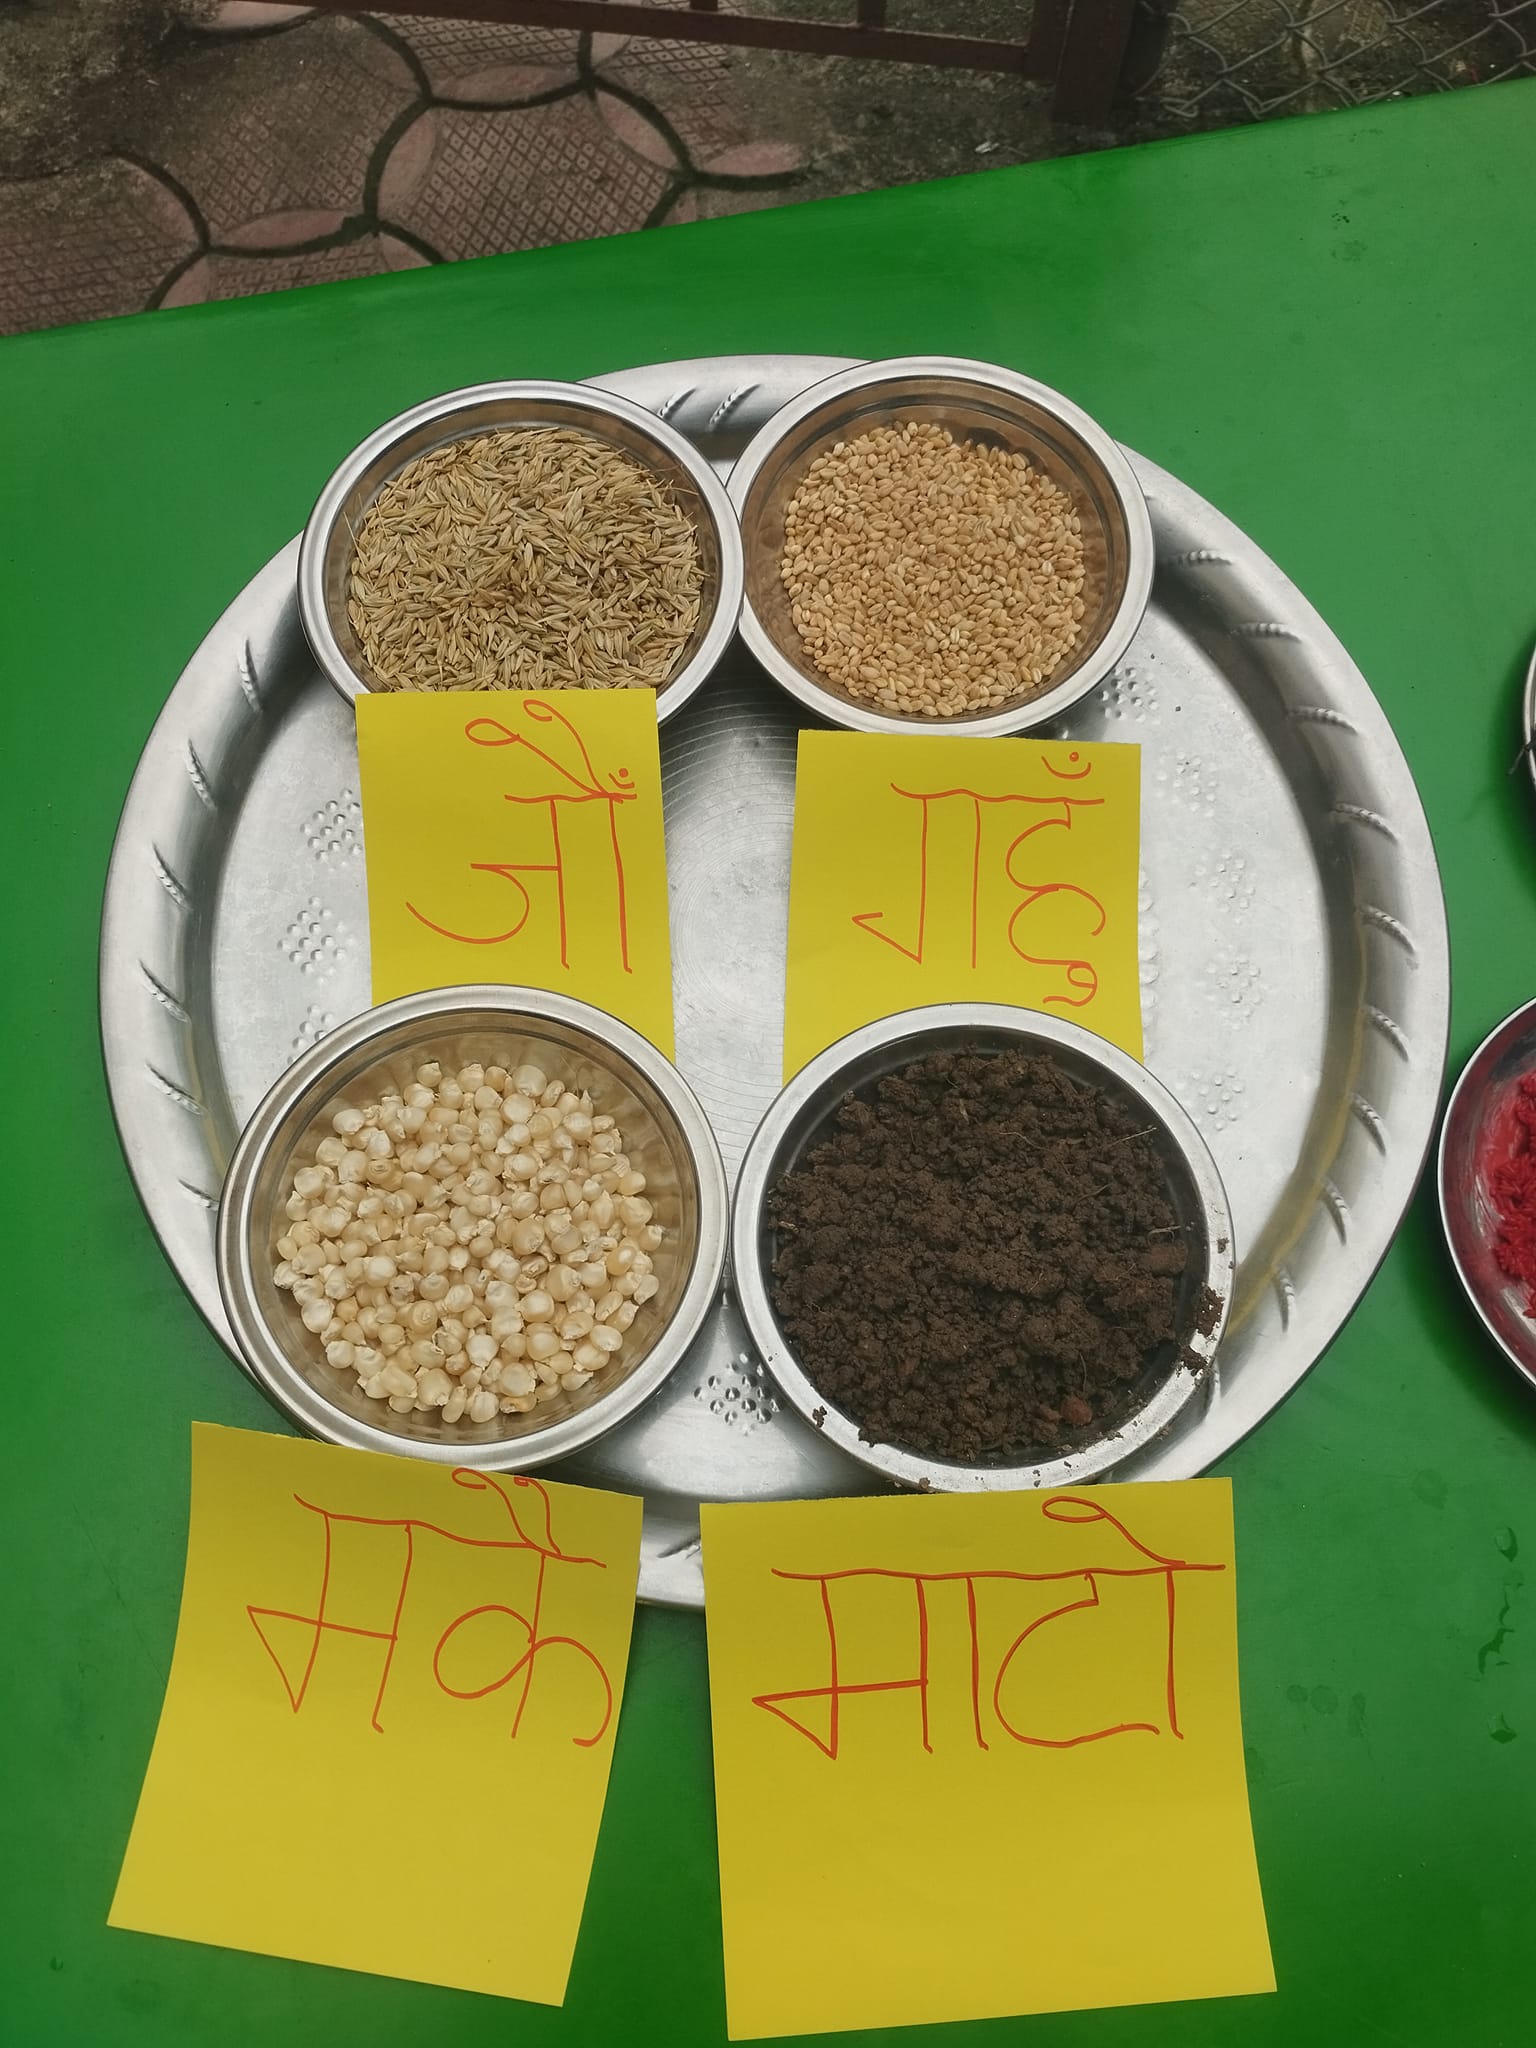 जौँ
गहुँ
मकै
माटो